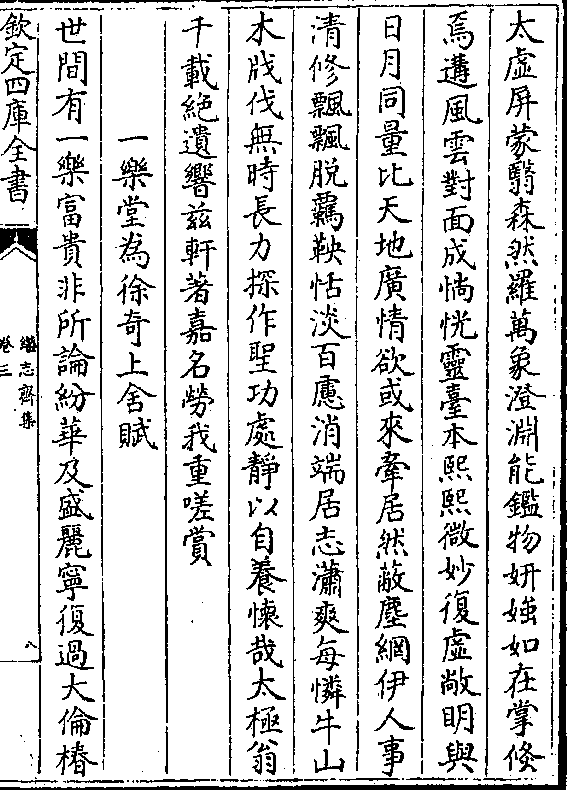 太虛屏蒙翳森然羅萬象澄淵能鑑物妍媸如在掌倏
焉遘風雲對面成惝恍靈臺本熙熙微妙復虛敞明與
日月同量比天地廣情欲或來牽居然蔽塵網伊人事
清修飄飄脫羈鞅恬淡百慮消端居志瀟爽每憐牛山
木戕伐無時長力探作聖功處靜以自養懷哉太極翁
千載絕遺響兹軒著嘉名勞我重嗟賞
一樂堂為徐奇上舍賦
世間有一樂富貴非所論紛華及盛麗寧復過大倫椿
欽定四庫全書
繼志齋集
卷三
八